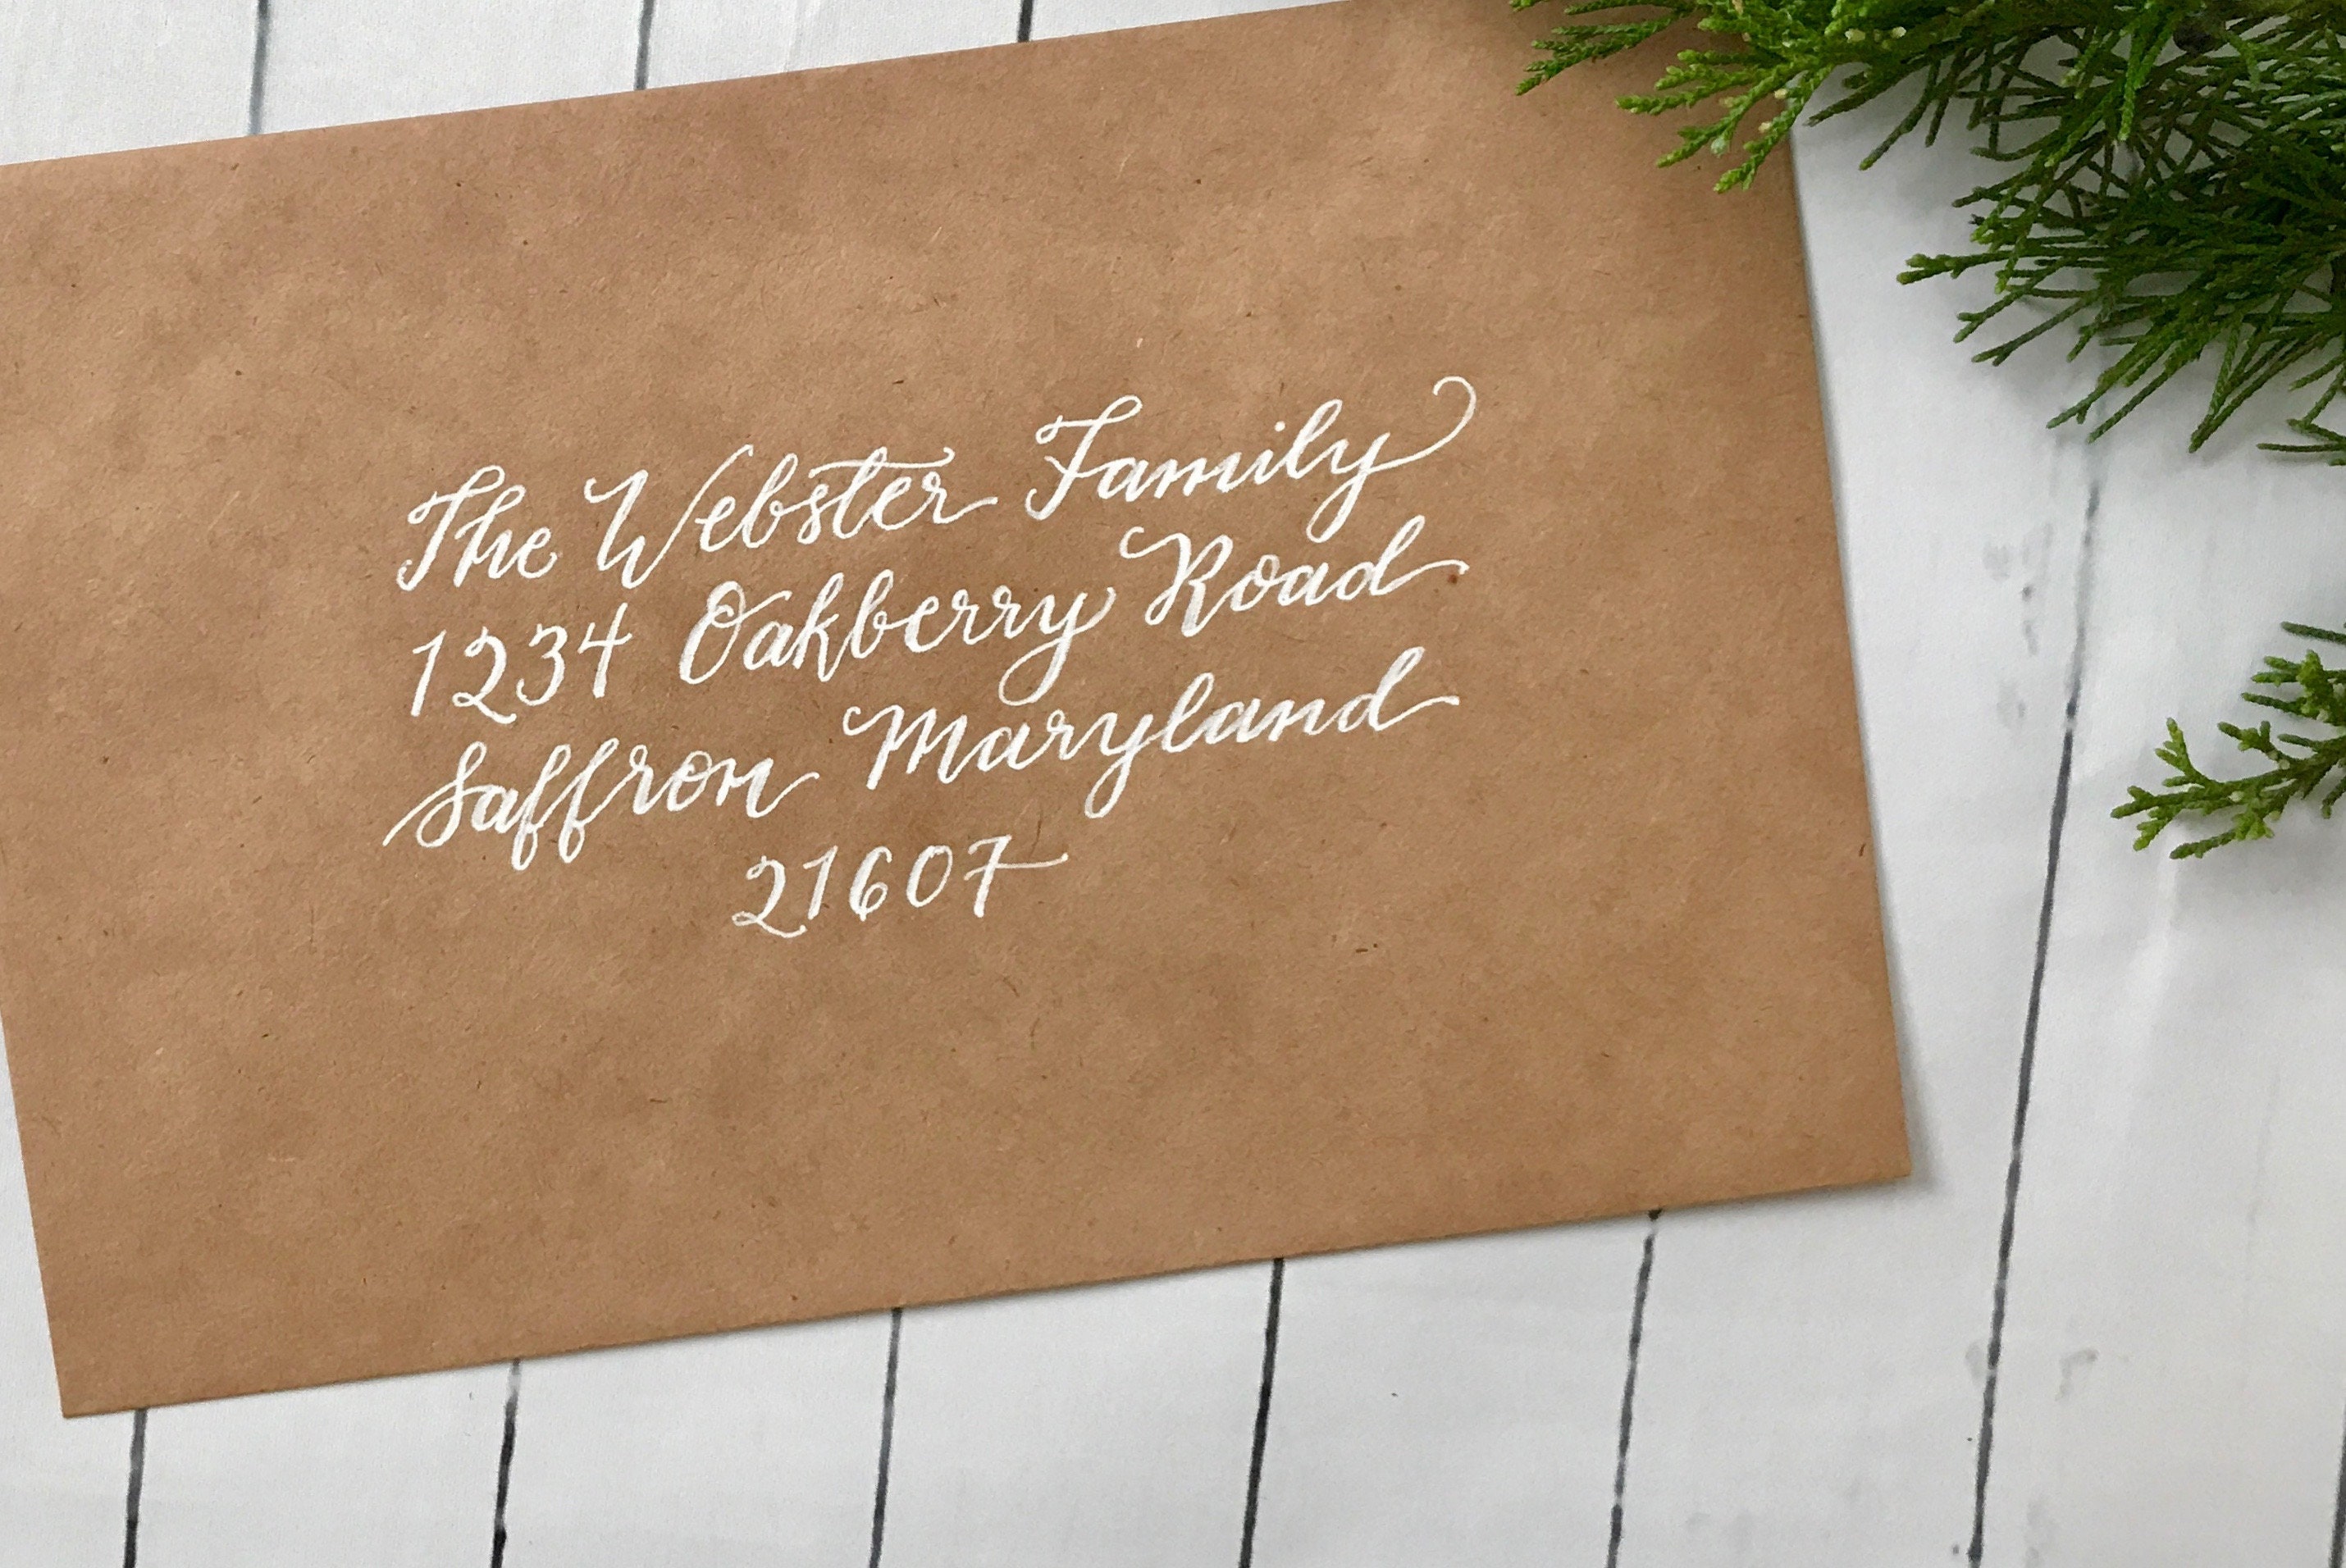 The Webster Family
1234 Oakberry Road
Saffron Maryland
21607